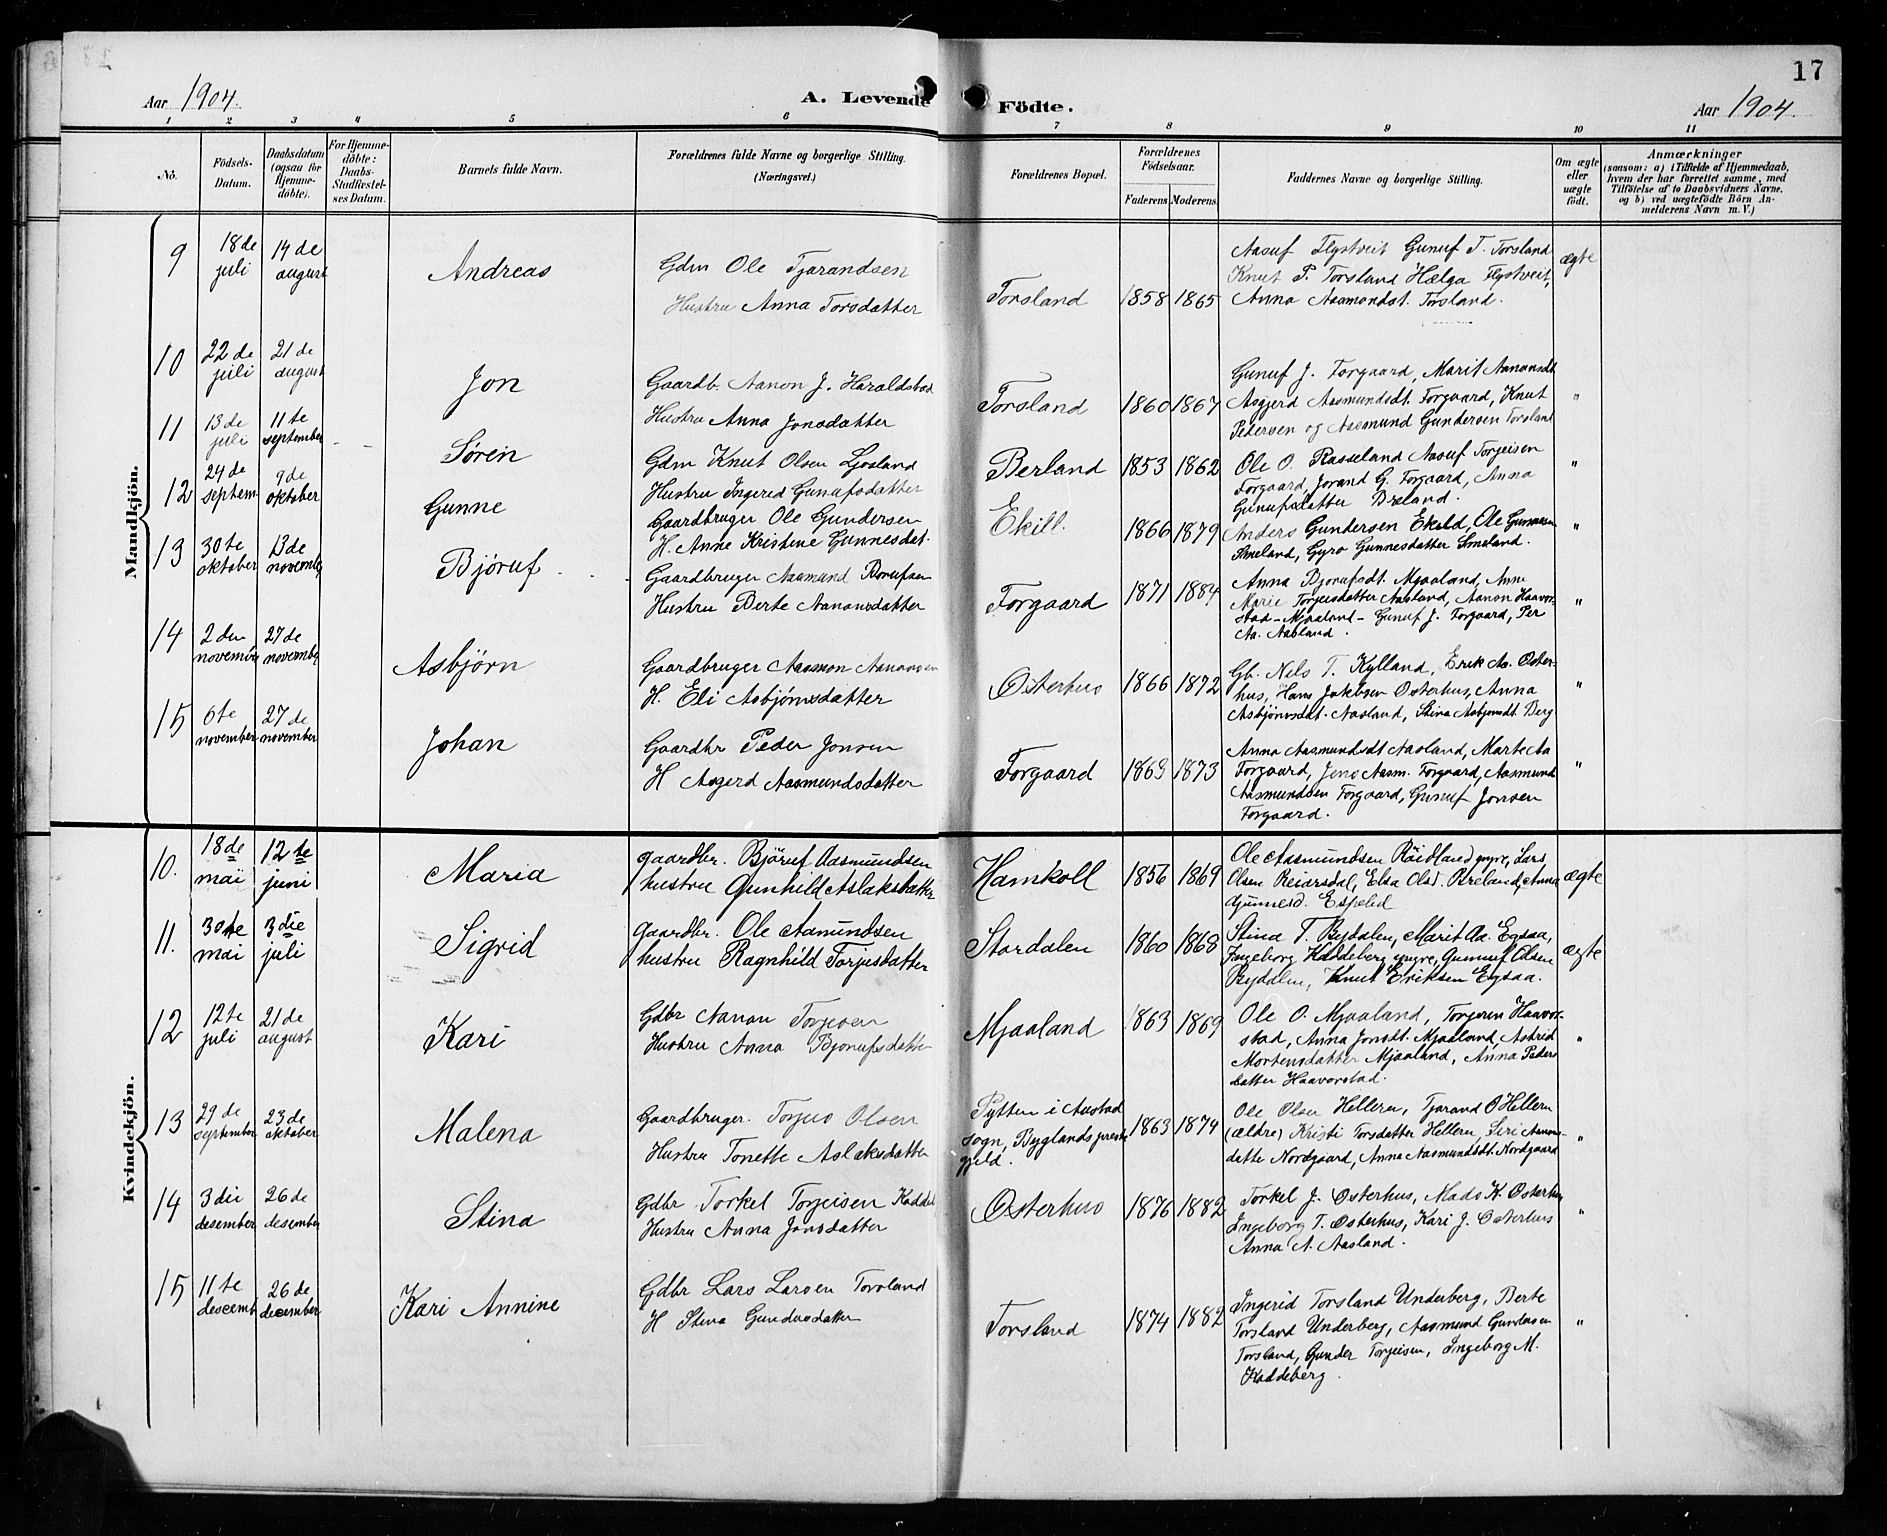 17
Aar 1904.
A. Levende Födte.
Aar 1904.
1 2 3 4 5 6 7 8 9 10 11
No.
Födsels-Datum.
Daabsdatum (ogsaa for Hjemme-döbte).
For Hjemme-döbte: Daabs-Stadfæstel-ses Datum.
Barnets fulde Navn.
Forældrenes fulde Navne og borgerlige Stilling.
(Næringsvei.)
Forældrenes Bopæl.
Forældrenes Födselsaar.
Faderens Moderens
Faddernes Navne og borgerlige Stilling.
Om ægte eller uægte födt.
Anmærkninger
(saasom: a) i Tilfælde af Hjemmedaab,
hvem der har forrettet samme, med
Tilföielse af to Daabsvidners Navne.
og b) ved uægtefödte Börn An-
melderens Navn m. V.)
Mandkjön.
9 18de juli 14de august Andreas
Gdm Ole Tjorandsen
Hustru Anna Torsdatter
Torsland 1858 1865
Aasuf Flystveit Gunuf T. Torsland
Knut P. Torsland Helga Flystveit,
Anna Aasmondsdt. Torsland.
ægte
10 22de juli 21de august Jon
Gaardb. Aanon J. Haraldstad
Hustru Anna Jonsdatter
Torsland 1860 1867
Gunuf J. Forgaard, Marit Aanonsdt
Asgjerd Aasmundsdt. Forgaard, Knut
Pedersen og Aasmund Gundersen Torsland
"
11 13de juli 11te september - - Søren
Gdm Knut Olsen Ljosland
Hustru Ingerid Gunufsdatter
Berland 1853 1862
Ole O. Rasseland Aasuf Torjeisen
Forgaard, Jorand G. Forgaard, Anna
Gunufsdatter Breland.
"
12 24de septem. 9de oktober Gunne
Gaardbruger Ole Gundersen
H. Anne Kristine Gunnesdat.
Ekill. 1866 1879
Anders Gundersen Ekeld, Ole Gunnesen
Smeland, Gyro Gunnesdatter Smeland.
"
13 30te oktober 13de novembr Bjøruf
Gaardbruger Aasmund Borufsen
Hustru Berte Aanonsdatter
Forgaard 1871 1884
Anna Bjorufsdt. Mjaaland, Anne
Marie Torjusdatter Aasland, Aanon Haavor-
stad - Mjaaland - Gunuf J. Forgaard, Per
Aa. Aasland.
"
14 2den november 27de november Asbjørn
Gaardbruger Aasmon Aanonsen
H. Eli Asbjørnsdatter
Osterhus 1866 1872
Gb. Nels T. Kylland, Erik As. Oster-
hus, Hans Jakobsen Osterhus, Anna
Asbjørnsdat. Aasland, Stina Asbjørnsdt. Berg
"
15 6te november 27de november Johan
Gaardbr Peder Jonsen
H Asgerd Aasmundsdatter
Forgaard 1863 1873
Anna Aasmundsdt Aasland, Marte Aa
Forgaard, Jens Aasm. Forgaard, Aasmund
Aasmundsen Forgaard, Gunuf Jonsen
Forgaard.
"
Kvindekjön.
10. 18de mai 12te juni Maria
gaardbr. Björuf Aasmundsen
hustru Gunhild Aslaksdatter
Hamkoll 1856 1869
Ole Aasmundsen Röidland yngre, Lars
Olsen Reiarsdal, Elsa Olsd. Breland, Anna
Gunnesd. Espelid
ægte
11. 30te mai 3die juli Sigrid
gaardbr. Ole Aamundsen
hustru Ragnhild Torjusdatter
Stordalen 1860 1868
Stina T. Bydalen, Marit Aa. Egsaa,
Ingeborg Haddeberg yngre, Gunnuf Olsen
Bydalen, Knut Eriksen Egsaa.
ægte
12 12te juli 21de august Kari
Gdbr Aanon Torjesen
Hustru Anna Bjorufsdatter
Mjaaland 1863 1869
Ole O. Mjaaland, Torjeren Haavor-
stad, Anna Jonsdt. Mjaaland, Astrid
Mortensdatter Mjaaland, Anna Peders
datter Haavorstad.
"
13 29de september 23de oktober Malena
Gaardbruger Torjus Olsen
Hustru Tonette Aslaksdatter
Pytten i Austad
sogn, Byglands preste
gjeld.
1863 1874
Ole Olsen Helleren, Tjorand O Helleren
(ældre) Kristi Torsdatter Helleren, Siri Aanons-
datte Nordgaard, Anna Aasmundsdt. Nordgaard
"
14 3die desember 26de desember Stina
Gdbr Torkel Torjeisen Kaddeb
Hustru Anna Jonsdatter
Osterhus 1876 1882
Torkel J. Osterhus, Mads K. Osterhus
Ingeborg T. Osterhus, Kari J. Osterhus
Anna A. Aasland.
"
15 11te descemb 26de december Kari Annine
Gdbr Lars Larsen Torsland
H Stina Gundersdatter
Torsland 1874 1882
Ingerid Torsland Underberg, Berte
Torsland Underberg, Aasmund Gundersen
Torsland, Gunder Torjeisen, Ingeborg M.
Kaddeberg.
"